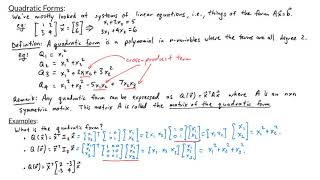 Quadratic Forms:
We've mostly looked at systems of linear equations, i.e., things of the form Ax̄=b̄.
eg [1 2; 3 4] x̄ = [5; 6] x₁+2x₂=5
3x₁+4x₂=6
Definition: A quadratic form is a polynomial in n-variables where the terms are all degree 2.
eg Q₁ = x₁²
Q₂ = x₁²+x₂² cross-product term
Q₃ = x₁²-2x₁x₂+3x₂²
Q₄ = x₁²-5x₁x₂+7x₂x₃
Remark: Any quadratic form can be expressed as Q(x̄)=x̄ᵀAx̄ where A is an nxn
symmetric matrix. This matrix A is called the matrix of the quadratic form.
Examples:
What is the quadratic form?
• Q(x̄)=x̄ᵀI₂x̄ = [x₁ x₂][1 0; 0 1][x₁; x₂] = [x₁ x₂][x₁; x₂] = x₁²+x₂².
• Q(x̄)=x̄ᵀI₃x̄ = [x₁ x₂ x₃][1 0 0; 0 1 0; 0 0 1][x₁; x₂; x₃] = [x₁ x₂ x₃][x₁; x₂; x₃] = x₁²+x₂²+x₃².
• Q(x̄)=x̄ᵀ